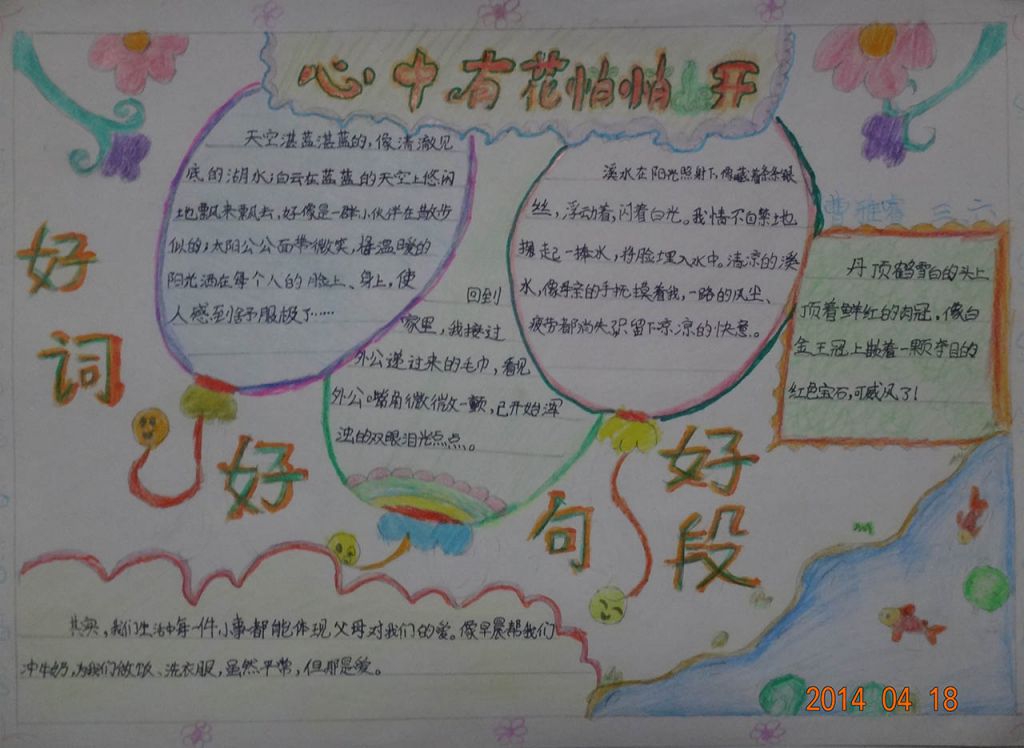 心中有花悄悄开
天空湛蓝湛蓝的，像清澈见
底的湖水；白云在蓝蓝的天空上悠闲
地飘来飘去，好像是一群小伙伴在散步
似的；太阳公公面带微笑，将温暖的
阳光洒在每个人的脸上、身上，使
人感到舒服极了……
溪水在阳光照射下，像藏着条条银
丝，浮动着，闪着白光。我情不自禁地
掬起一捧水，将脸埋入水中。清凉的溪
水，像母亲的手抚摸着我，一路的风尘、
疲劳都消失，只留下凉凉的快意。
曹雅睿 三、六
丹顶鹤雪白的头上
顶着鲜红的肉冠，像白
金王冠上嵌着一颗夺目的
红色宝石，可威风了！
回到
家里，我接过
外公递过来的毛巾，看见
外公嘴角微微一颤，已开始浑
浊的双眼泪光点点。
好
词
好
句
好
段
其实，我们生活中每一件小事都能体现父母对我们的爱。像早晨帮我们
冲牛奶，为我们做饭、洗衣服，虽然平常，但那是爱。
2014 04 18